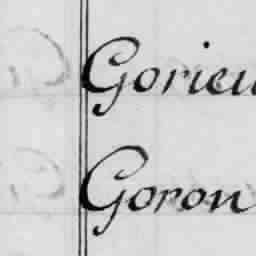 Goricu
Goron